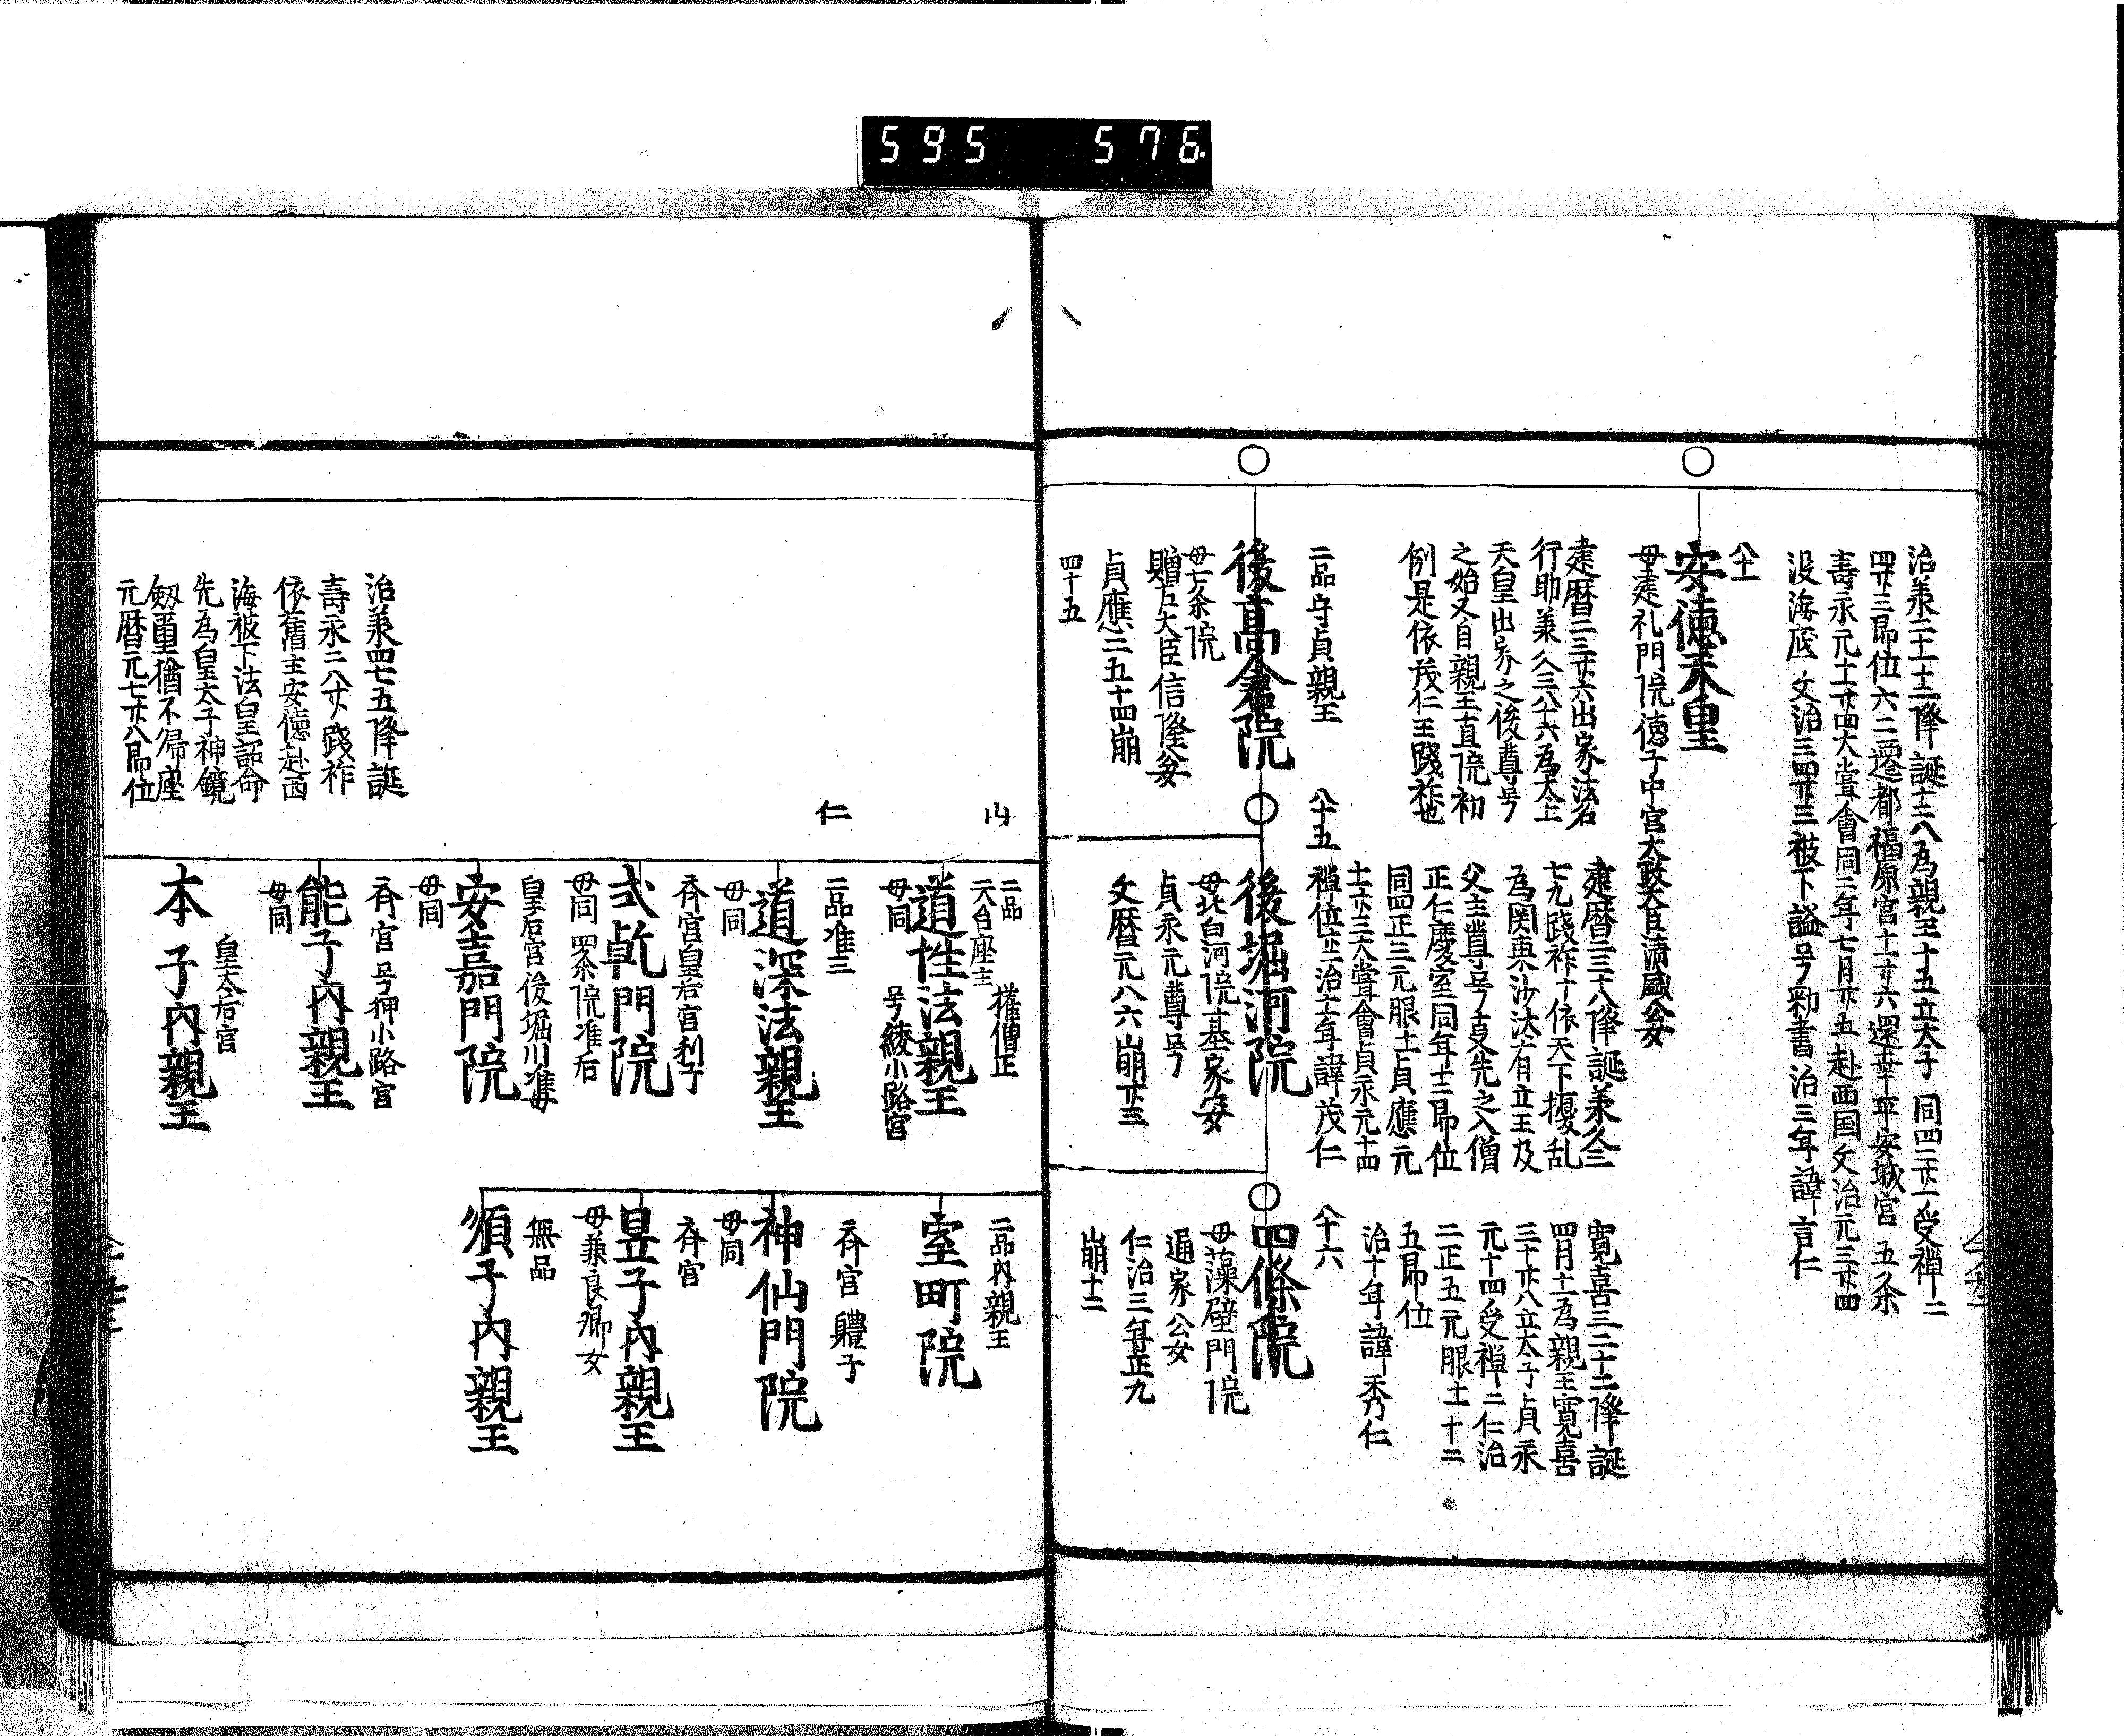 595 576
治承二十一十二降誕十二八為親王十五立太子同四二廿一受禅二
四廿二即位六二遷都福原宮十一廿六還幸平安城宮五条
壽永元十一廿四大嘗會同二年七月廿五赴西国文治元三廿四
没海底文治三四廿三被下謚号勅書治三年諱言仁
八十一
安徳天皇
母建礼門院徳子中宮太政大臣清盛女
建暦二三廿六出家法名
行助承久三八十六為太上
天皇出家之後尊号
之始又自親王直院初
例是依茂仁王踐祚也
二品守貞親王
後高倉院
母七条院
贈左大臣信隆女
貞應二五十四崩
四十五
建暦二三十八降誕承久三
七九踐祚十依天下擾乱
為関東沙汰有立王及
父主尊号支先之入僧
正仁慶室同年十二即位
同四正三元服十一貞應元
十一廿三大嘗會貞永元十四
禅位廿二治十二年諱茂仁
八十五
後堀河院
母北白河院基家女
貞永元尊号
文暦元八六崩廿三
寛喜三二十二降誕
四月十一為親王寛喜
三十廿八立太子貞永
元十四受禅二仁治
二正五元服十一十二
五即位
治十年諱秀仁
八十六
四條院
母藻壁門院
道家公女
仁治三年正九
崩十二
山
二品
天台座主 権僧正
道性法親王
母同 号綾小路宮
仁
二品准三
道深法親王
母同
斉宮皇后宮利子
式乹門院
母同 四条院准后
皇后宮後堀川准母
安嘉門院
母同
斉宮号押小路宮
能子内親王
母同
皇太后宮
本子内親王
二品内親王
室町院
斉宮 軆子
神仙門院
母同
斉宮
昱子内親王
母兼良卿女
無品
頒子内親王
治承四七五降誕
壽永二八廿踐祚
依舊主安徳赴西
海被下法皇詔命
先為皇太子神鏡
剱璽猶不帰座
元暦元七廿八即位